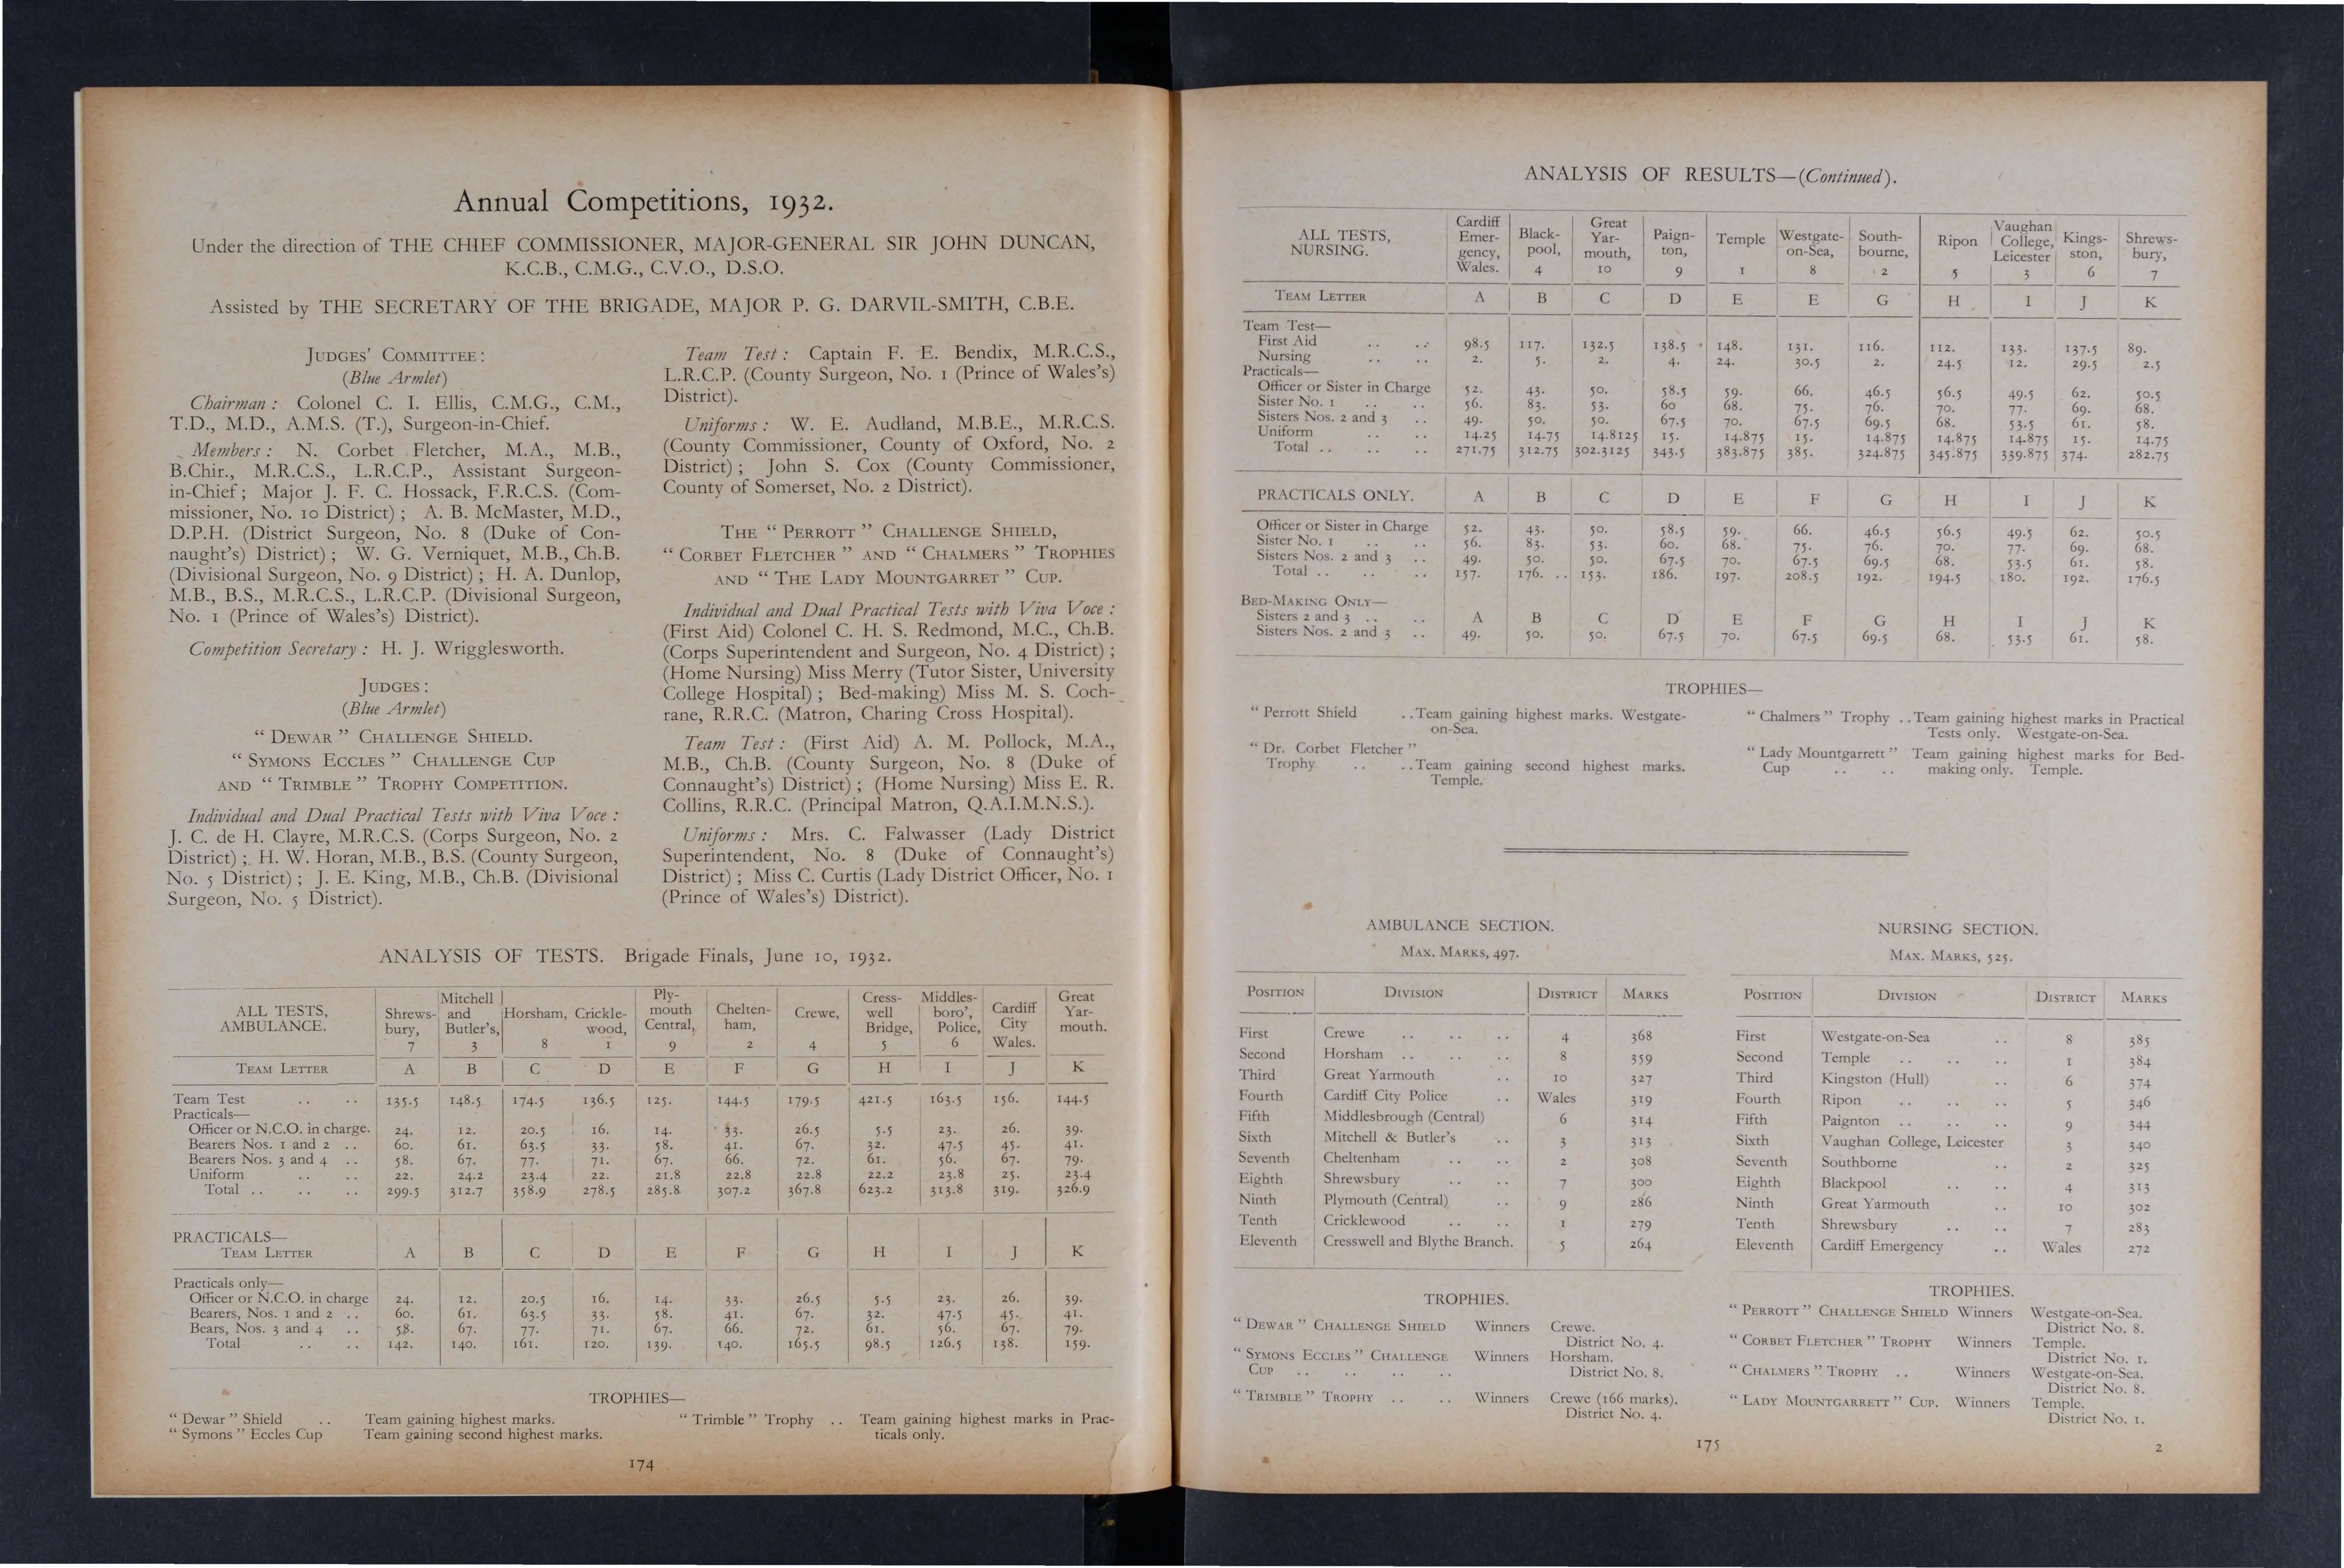 Annual Competitions, 1932.
Under the direction of THE CHIEF COMMISSIONER, MAJOR-GENERAL SIR JOHN DUNCAN,
K.C.B., C.M.G., C.V.O., D.S.O.
Assisted by THE SECRETARY OF THE BRIGADE, MAJOR P. G. DARVIL-SMITH, C.B.E.
JUDGES' COMMITTEE :
(Blue Armlet)
Chairman : Colonel C. I. Ellis, C.M.G., C.M.,
T.D., M.D., A.M.S. (T.), Surgeon-in-Chief.
Members : N. Corbet Fletcher, M.A., M.B.,
B.Chir., M.R.C.S., L.R.C.P., Assistant Surgeon-
in-Chief ; Major J. F. C. Hossack, F.R.C.S. (Com-
missioner, No. 10 District) ; A. B. McMaster, M.D.,
D.P.H. (District Surgeon, No. 8 (Duke of Con-
naught's) District) ; W. G. Verniquet, M.B., Ch.B.
(Divisional Surgeon, No. 9 District) ; H. A. Dunlop,
M.B., B.S., M.R.C.S., L.R.C.P. (Divisional Surgeon,
No. 1 (Prince of Wales's) District).
Competition Secretary : H. J. Wrigglesworth.
JUDGES :
(Blue Armlet)
" DEWAR " CHALLENGE SHIELD.
" SYMONS ECCLES " CHALLENGE CUP
AND " TRIMBLE " TROPHY COMPETITION.
Individual and Dual Practical Tests with Viva Voce :
J. C. de H. Clayre, M.R.C.S. (Corps Surgeon, No. 2
District) ; H. W. Horan, M.B., B.S. (County Surgeon,
No. 5 District) ; J. E. King, M.B., Ch.B. (Divisional
Surgeon, No. 5 District).
Team Test : Captain F. E. Bendix, M.R.C.S.,
L.R.C.P. (County Surgeon, No. 1 (Prince of Wales's)
District).
Uniforms : W. E. Audland, M.B.E., M.R.C.S.
(County Commissioner, County of Oxford, No. 2
District) ; John S. Cox (County Commissioner,
County of Somerset, No. 2 District).
THE " PERROTT " CHALLENGE SHIELD,
" CORBET FLETCHER " AND " CHALMERS " TROPHIES
AND " THE LADY MOUNTGARRET " CUP.
Individual and Dual Practical Tests with Viva Voce :
(First Aid) Colonel C. H. S. Redmond, M.C., Ch.B.
(Corps Superintendent and Surgeon, No. 4 District) ;
(Home Nursing) Miss Merry (Tutor Sister, University
College Hospital) ; Bed-making) Miss M. S. Coch-
rane, R.R.C. (Matron, Charing Cross Hospital).
Team Test : (First Aid) A. M. Pollock, M.A.,
M.B., Ch.B. (County Surgeon, No. 8 (Duke of
Connaught's) District) ; (Home Nursing) Miss E. R.
Collins, R.R.C. (Principal Matron, Q.A.I.M.N.S.).
Uniforms : Mrs. C. Falwasser (Lady District
Superintendent, No. 8 (Duke of Connaught's)
District) ; Miss C. Curtis (Lady District Officer, No. 1
(Prince of Wales's) District).
ANALYSIS OF TESTS. Brigade Finals, June 10, 1932.
ALL TESTS, AMBULANCE. Shrews-bury, 7 Mitchell and Butler's, 3 Horsham, 8 Crickle-wood, 1 Ply-mouth Central, 9 Chelten-ham, 2 Crewe, 4 Cress-well Bridge, 5 Middles-boro', Police, 6 Cardiff City Wales. Great Yar-mouth.
TEAM LETTER A B C D E F G H I J K
Team Test .. .. 135.5 148.5 174.5 136.5 125. 144.5 179.5 421.5 163.5 156. 144.5
Practicals—
Officer or N.C.O. in charge. 24. 12. 20.5 16. 14. 33. 26.5 5.5 23. 26. 39.
Bearers Nos. 1 and 2 .. 60. 61. 63.5 33. 58. 41. 67. 32. 47.5 45. 41.
Bearers Nos. 3 and 4 .. 58. 67. 77. 71. 67. 66. 72. 61. 56. 67. 79.
Uniform .. .. 22. 24.2 23.4 22. 21.8 22.8 22.8 22.2 23.8 25. 23.4
Total .. .. .. 299.5 312.7 358.9 278.5 285.8 307.2 367.8 623.2 313.8 319. 326.9
PRACTICALS—
TEAM LETTER A B C D E F G H I J K
Practicals only—
Officer or N.C.O. in charge 24. 12. 20.5 16. 14. 33. 26.5 5.5 23. 26. 39.
Bearers, Nos. 1 and 2 .. 60. 61. 63.5 33. 58. 41. 67. 32. 47.5 45. 41.
Bears, Nos. 3 and 4 .. 58. 67. 77. 71. 67. 66. 72. 61. 56. 67. 79.
Total .. .. 142. 140. 161. 120. 139. 140. 165.5 98.5 126.5 138. 159.
TROPHIES—
" Dewar " Shield .. Team gaining highest marks.
" Symons " Eccles Cup Team gaining second highest marks.
" Trimble " Trophy .. Team gaining highest marks in Prac-
ticals only.
174
ANALYSIS OF RESULTS—(Continued).
ALL TESTS, NURSING. Cardiff Emer-gency, Wales. Black-pool, 4 Great Yar-mouth, 10 Paign-ton, 9 Temple 1 Westgate-on-Sea, 8 South-bourne, 2 Ripon 5 Vaughan College, Leicester 3 Kings-ston, 6 Shrews-bury, 7
TEAM LETTER A B C D E E G H I J K
Team Test—
First Aid .. .. 98.5 117. 132.5 138.5 148. 131. 116. 112. 133. 137.5 89.
Nursing .. .. 2. 5. 2. 4. 24. 30.5 2. 24.5 12. 29.5 2.5
Practicals—
Officer or Sister in Charge 52. 43. 50. 58.5 59. 66. 46.5 56.5 49.5 62. 50.5
Sister No. 1 .. .. 56. 83. 53. 60 68. 75. 76. 70. 77. 69. 68.
Sisters Nos. 2 and 3 .. 49. 50. 50. 67.5 70. 67.5 69.5 68. 53.5 61. 58.
Uniform .. .. 14.25 14.75 14.8125 15. 14.875 15. 14.875 14.875 14.875 15. 14.75
Total .. .. .. 271.75 312.75 302.3125 343.5 383.875 385. 324.875 345.875 339.875 374. 282.75
PRACTICALS ONLY. A B C D E F G H I J K
Officer or Sister in Charge 52. 43. 50. 58.5 59. 66. 46.5 56.5 49.5 62. 50.5
Sister No. 1 .. .. 56. 83. 53. 60. 68. 75. 76. 70. 77. 69. 68.
Sisters Nos. 2 and 3 .. 49. 50. 50. 67.5 70. 67.5 69.5 68. 53.5 61. 58.
Total .. .. .. 157. 176. .. 153. 186. 197. 208.5 192. 194.5 180. 192. 176.5
BED-MAKING ONLY—
Sisters 2 and 3 .. .. A B C D E F G H I J K
Sisters Nos. 2 and 3 .. 49. 50. 50. 67.5 70. 67.5 69.5 68. 53.5 61. 58.
TROPHIES—
" Perrott Shield .. Team gaining highest marks. Westgate-
on-Sea.
" Dr. Corbet Fletcher "
Trophy .. .. Team gaining second highest marks.
Temple.
" Chalmers " Trophy .. Team gaining highest marks in Practical
Tests only. Westgate-on-Sea.
" Lady Mountgarrett " Team gaining highest marks for Bed-
Cup .. .. making only. Temple.
AMBULANCE SECTION.
MAX. MARKS, 497.
POSITION DIVISION DISTRICT MARKS
First Crewe .. .. .. 4 368
Second Horsham .. .. .. 8 359
Third Great Yarmouth .. 10 327
Fourth Cardiff City Police .. Wales 319
Fifth Middlesbrough (Central) 6 314
Sixth Mitchell & Butler's .. 3 313
Seventh Cheltenham .. .. 2 308
Eighth Shrewsbury .. .. 7 300
Ninth Plymouth (Central) .. 9 286
Tenth Cricklewood .. .. 1 279
Eleventh Cresswell and Blythe Branch. 5 264
TROPHIES.
" DEWAR " CHALLENGE SHIELD Winners Crewe.
District No. 4.
" SYMONS ECCLES " CHALLENGE Winners Horsham.
CUP .. .. .. .. District No. 8.
" TRIMBLE " TROPHY .. .. Winners Crewe (166 marks).
District No. 4.
NURSING SECTION.
MAX. MARKS, 525.
POSITION DIVISION DISTRICT MARKS
First Westgate-on-Sea .. 8 385
Second Temple .. .. .. 1 384
Third Kingston (Hull) .. 6 374
Fourth Ripon .. .. .. 5 346
Fifth Paignton .. .. .. 9 344
Sixth Vaughan College, Leicester 3 340
Seventh Southborne .. 2 325
Eighth Blackpool .. .. 4 313
Ninth Great Yarmouth .. 10 302
Tenth Shrewsbury .. .. 7 283
Eleventh Cardiff Emergency .. Wales 272
TROPHIES.
" PERROTT " CHALLENGE SHIELD Winners Westgate-on-Sea.
District No. 8.
" CORBET FLETCHER " TROPHY Winners Temple.
District No. 1.
" CHALMERS " TROPHY .. Winners Westgate-on-Sea.
District No. 8.
" LADY MOUNTGARRETT " CUP. Winners Temple.
District No. 1.
175
2